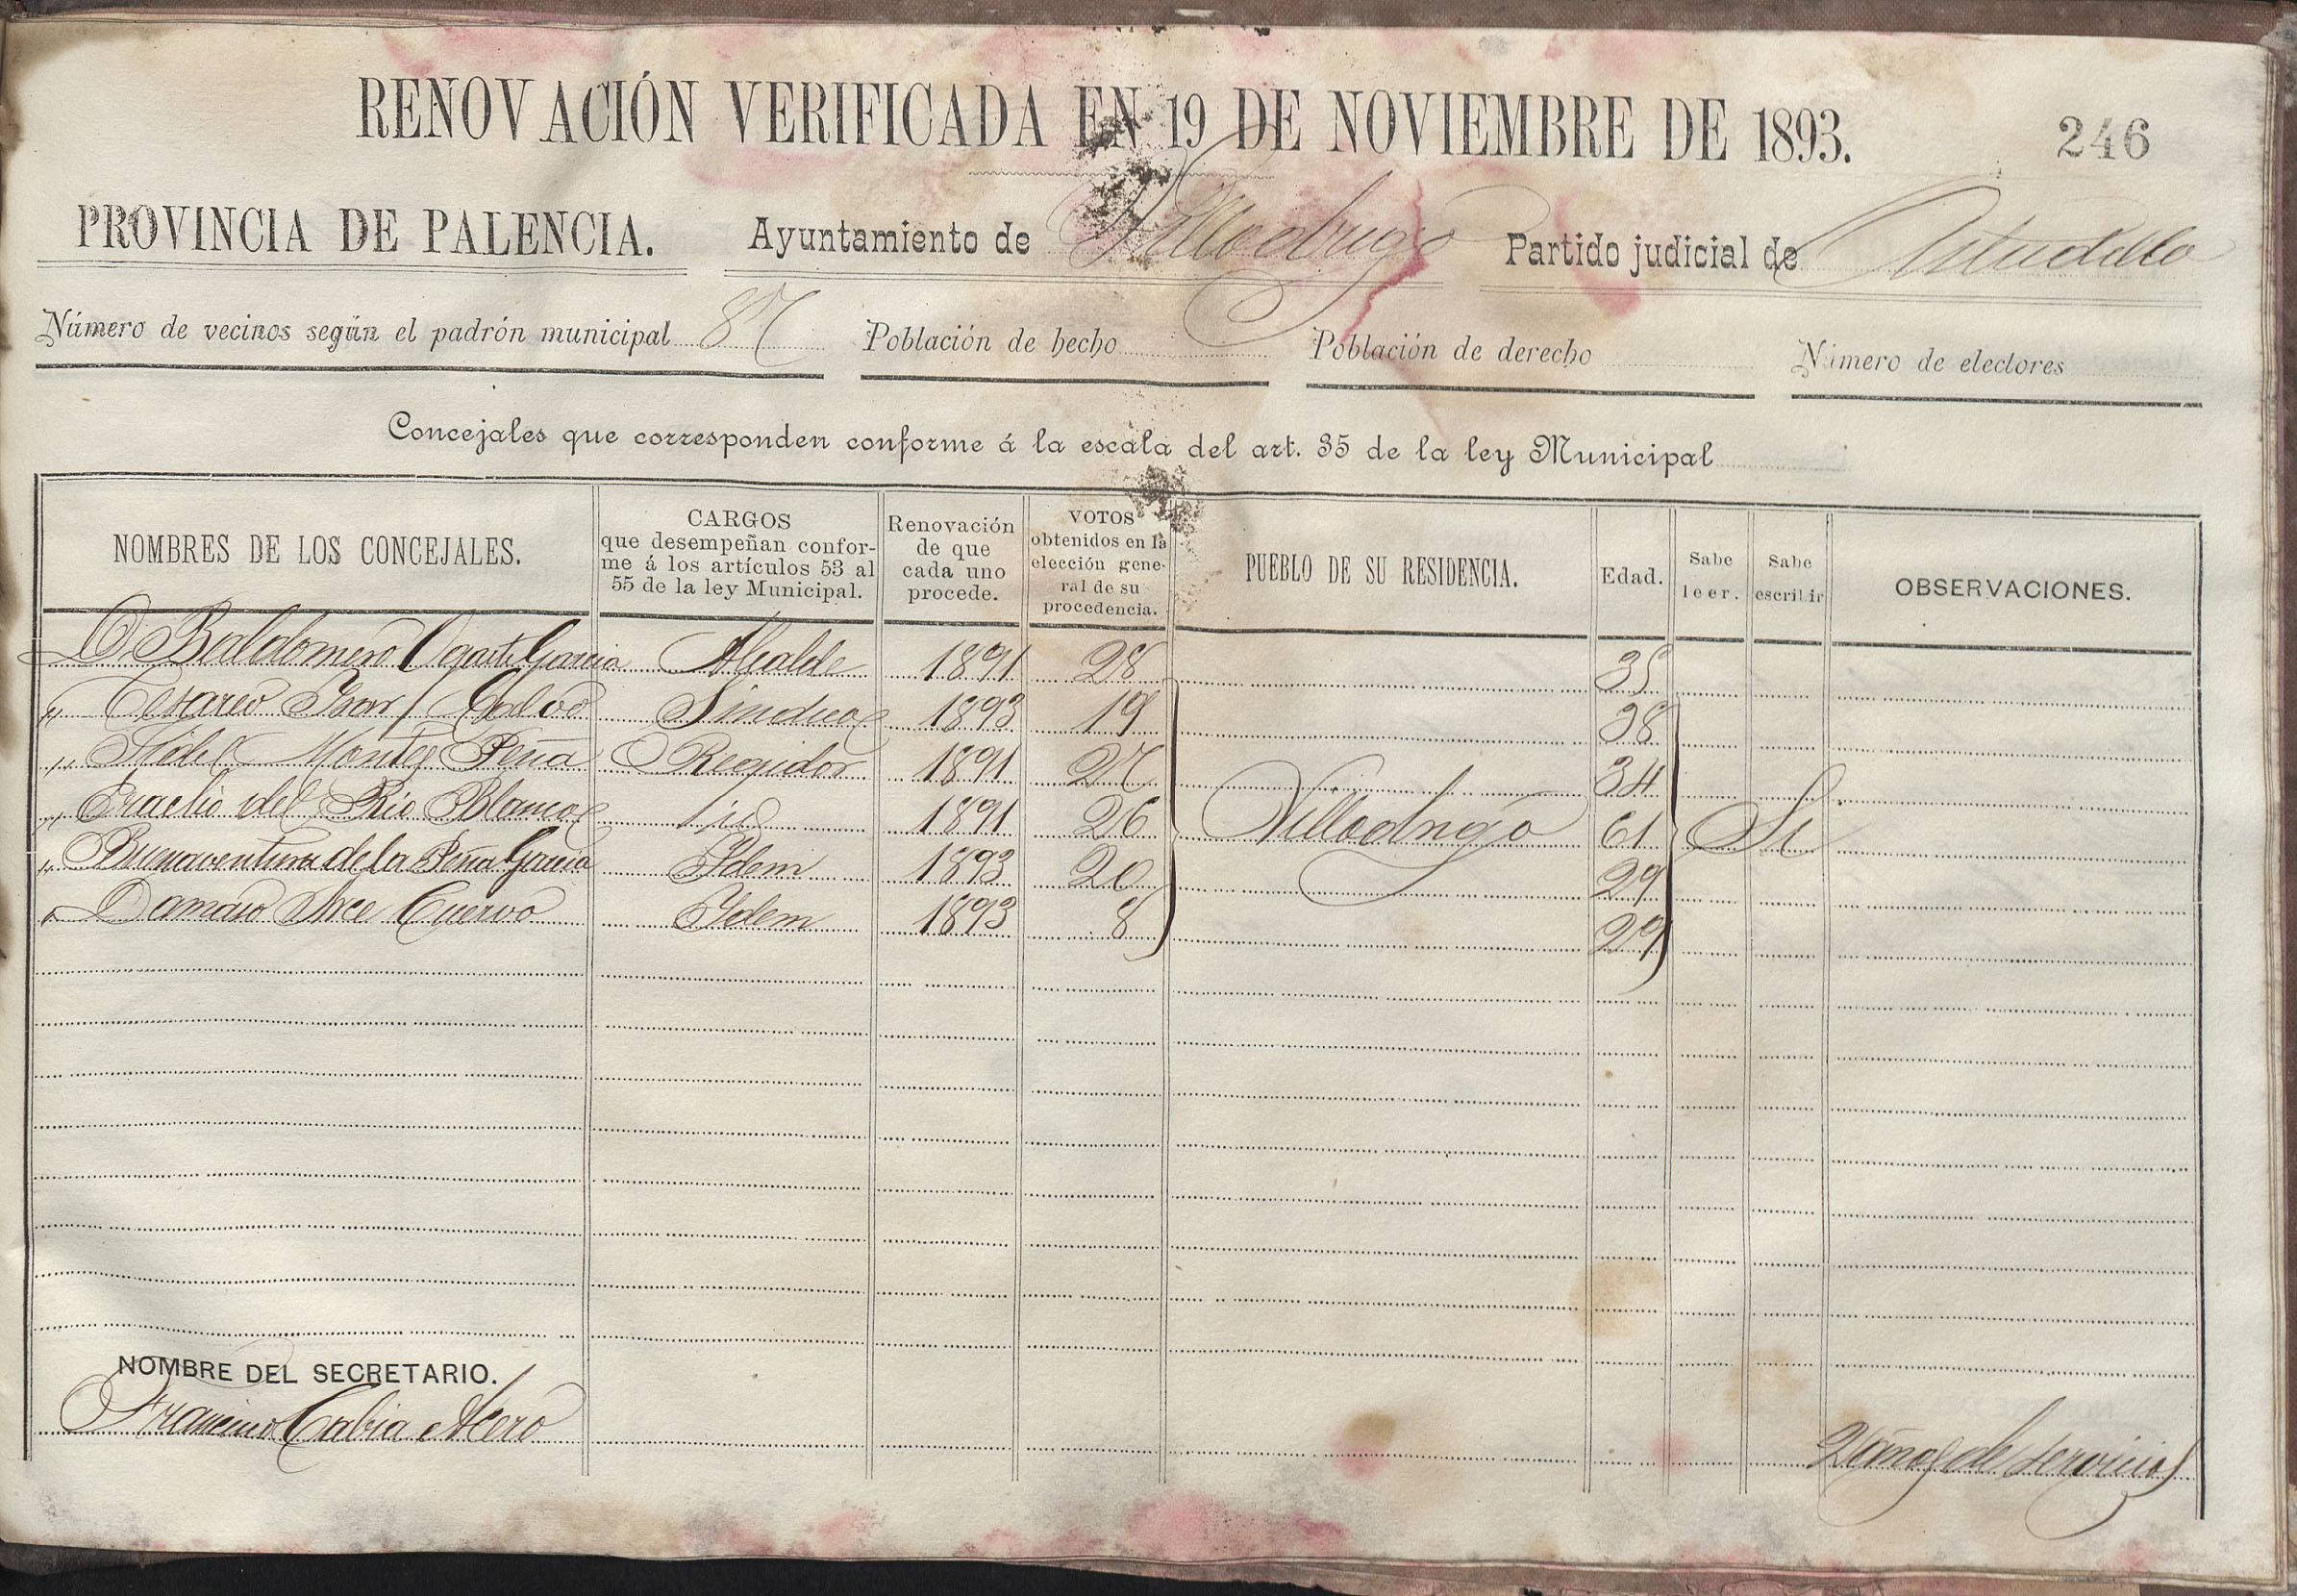 RENOVACIÓN VERIFICADA EN 19 DE NOVIEMBRE DE 1893.
246
PROVINCIA DE PALENCIA. Ayuntamiento de Villodrigo Partido judicial de Astudillo
Número de vecinos según el padrón municipal 87 Población de hecho Población de derecho Número de electores
Concejales que corresponden conforme á la escala del art. 35 de la ley Municipal
NOMBRES DE LOS CONCEJALES.
CARGOS
que desempeñan confor-
me á los artículos 53 al
55 de la ley Municipal.
Renovación
de que
cada uno
procede.
VOTOS
obtenidos en la
elección gene-
ral de su
procedencia.
PUEBLO DE SU RESIDENCIA.
Edad.
Sabe
leer.
Sabe
escribir
OBSERVACIONES.
D Baldomero Ugarte Garcia Alcalde 1891 28 35
" Cesareo Isar Calvo Sindico 1893 19 38
" Fidel Montes Peña Regidor 1891 27 34
" Eraclio del Rio Blanco id 1891 26 Villodrigo 61 Si
" Buenaventura de la Peña Garcia Idem 1893 20 29
" Damaso Cuervo Idem 1893 8 29
NOMBRE DEL SECRETARIO.
Francisco Cabia Acero
años de servicios